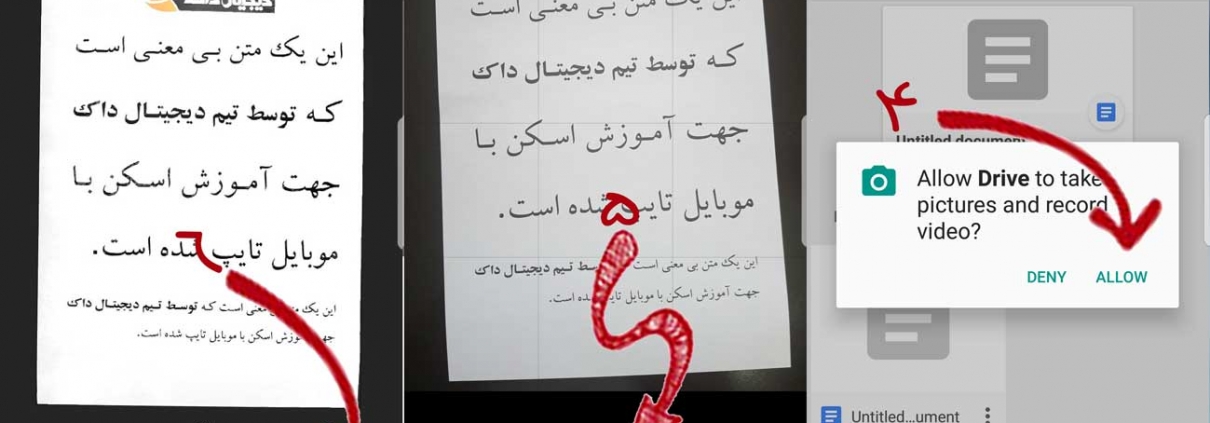 دیجیتال داک
این یک متن بی معنی است
که توسط تیم دیجیتال داک
جهت آموزش اسکن با
موبایل تایپ شده است.
این یک متن بی معنی است که توسط تیم دیجیتال داک
جهت آموزش اسکن با موبایل تایپ شده است.
۶
این یک متن بی معنی است
که توسط تیم دیجیتال داک
جهت آموزش اسکن با
موبایل تایپ شده است.
این یک متن بی معنی است که توسط تیم دیجیتال داک
جهت آموزش اسکن با موبایل تایپ شده است.
۵
۴
Untitled document
Allow Drive to take
pictures and record
video?
DENY
ALLOW
Untitled...ument